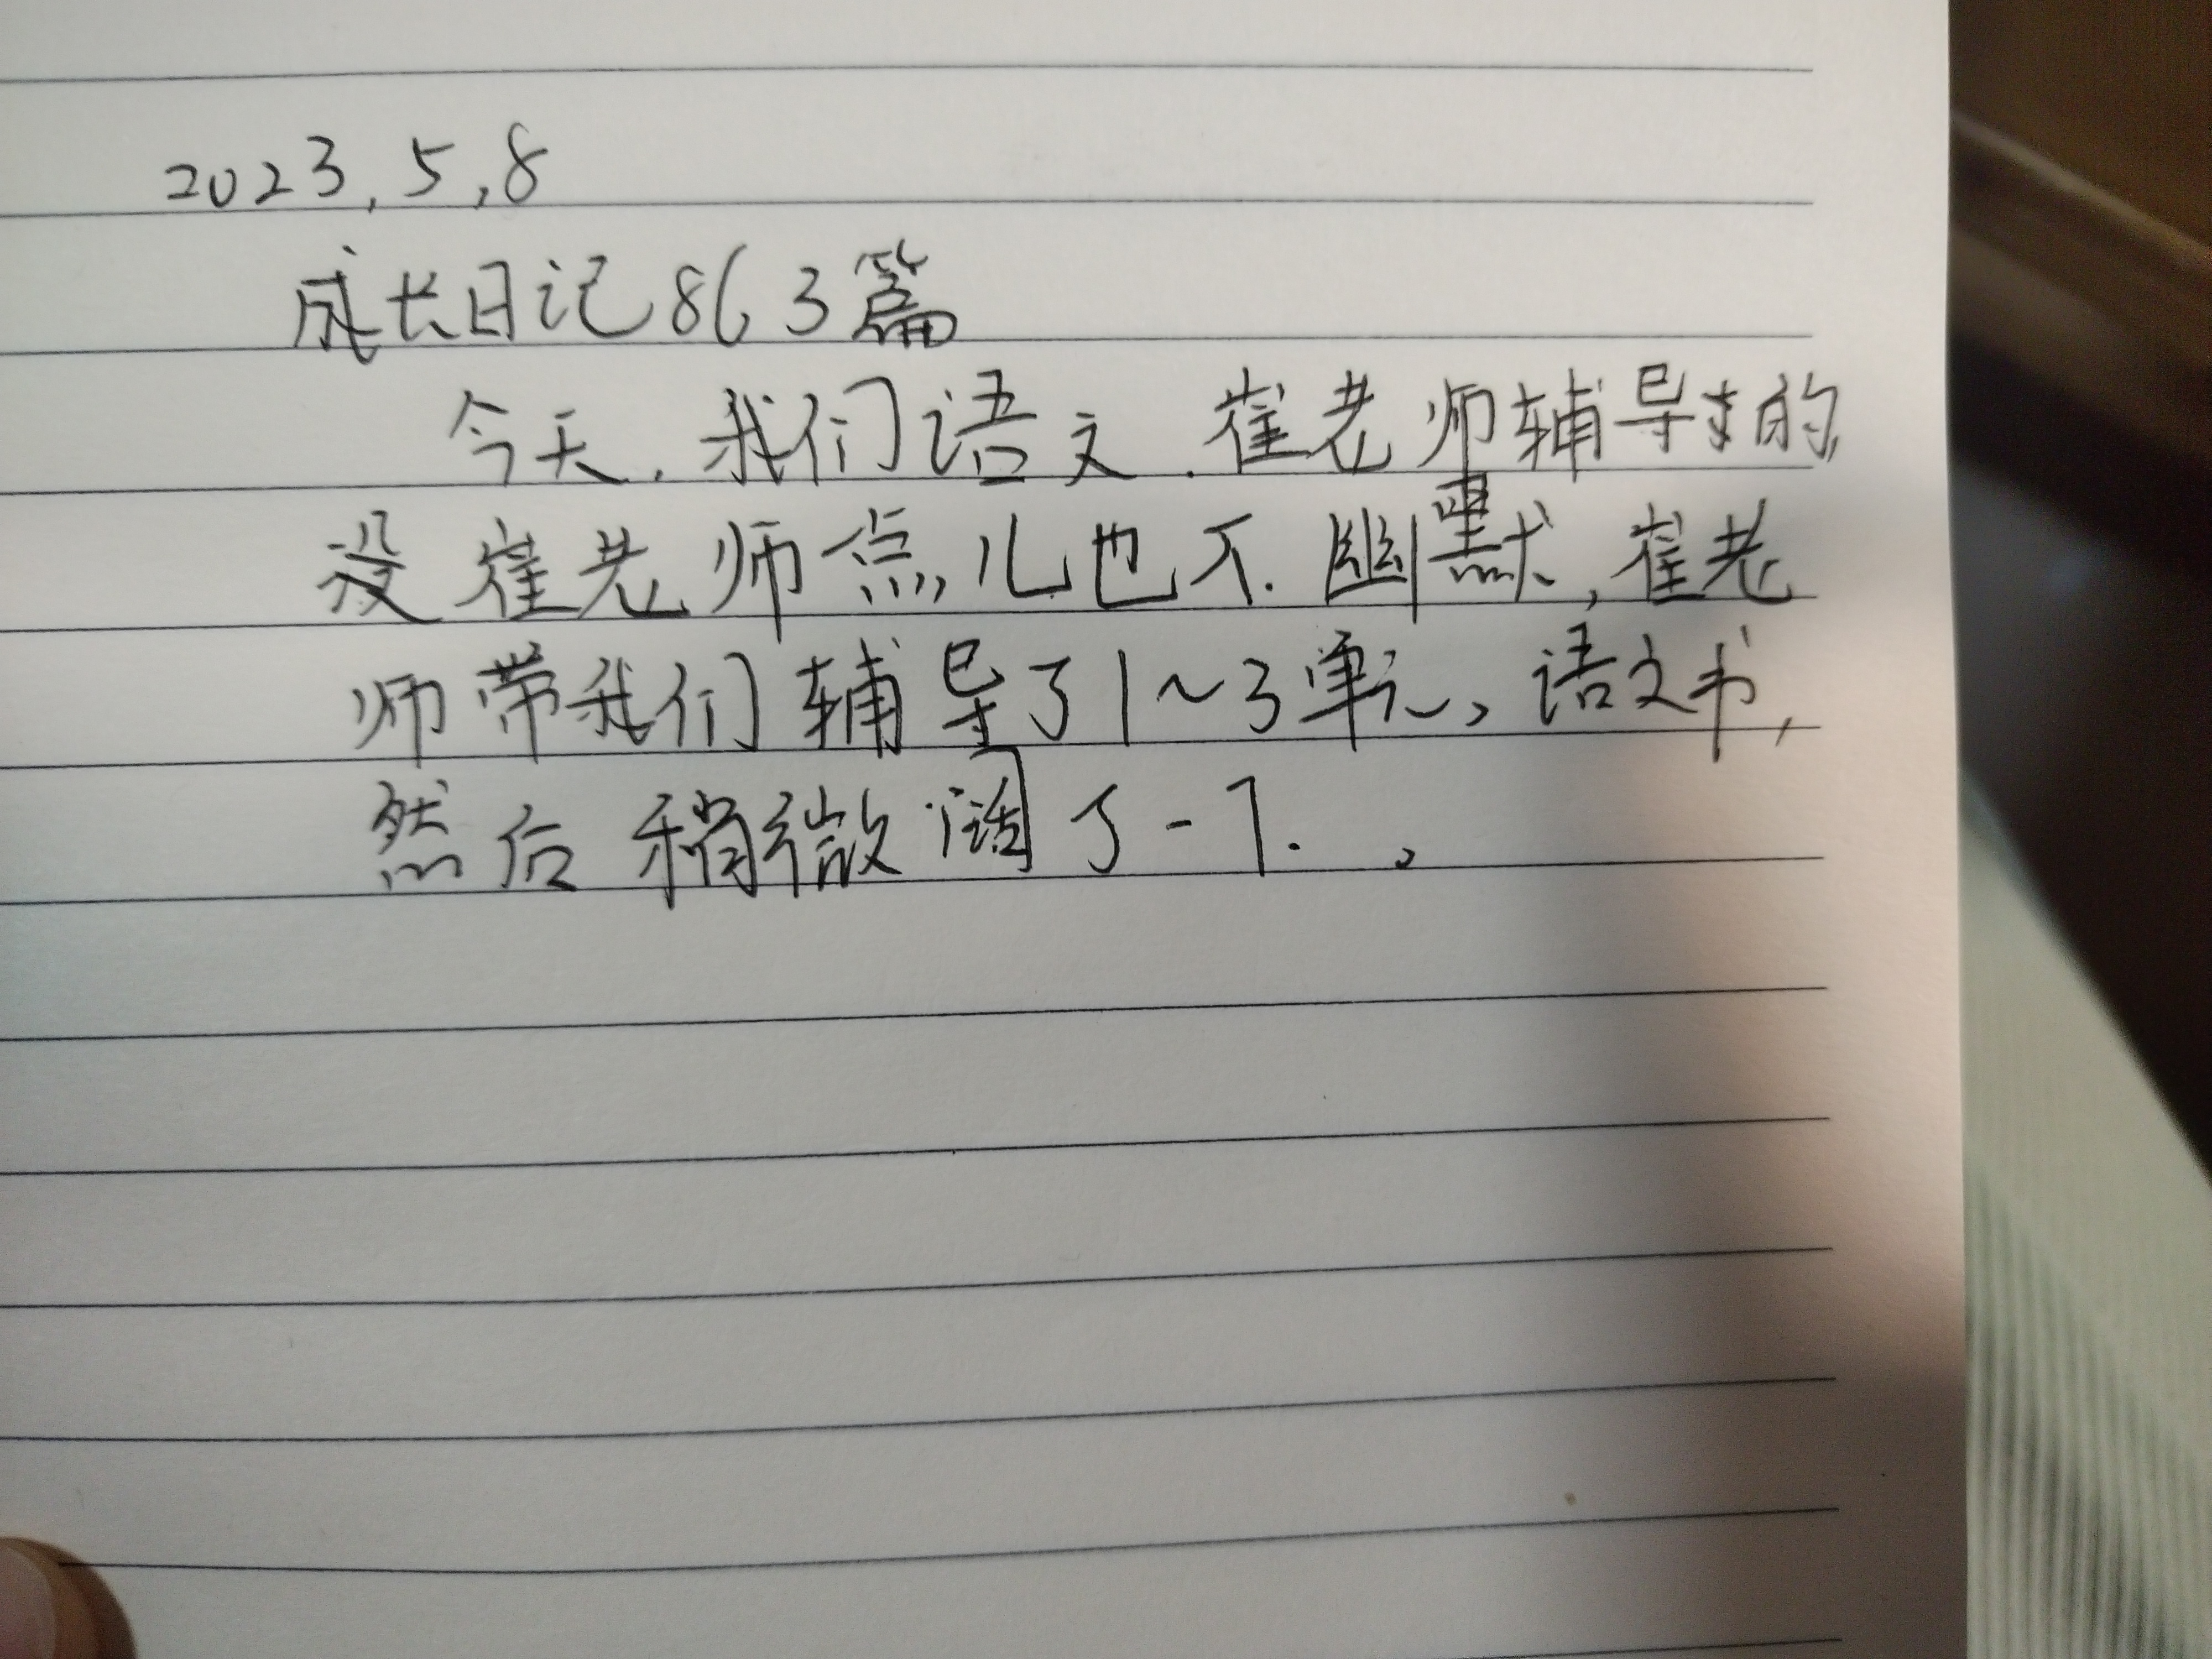 2023,5,8
成长日记863篇
今天,我们语文.崔老师辅导的
没崔老师点儿也不幽默,崔老
师带我们辅导了1~3单元,语文书,
然后稍微阔了一下。